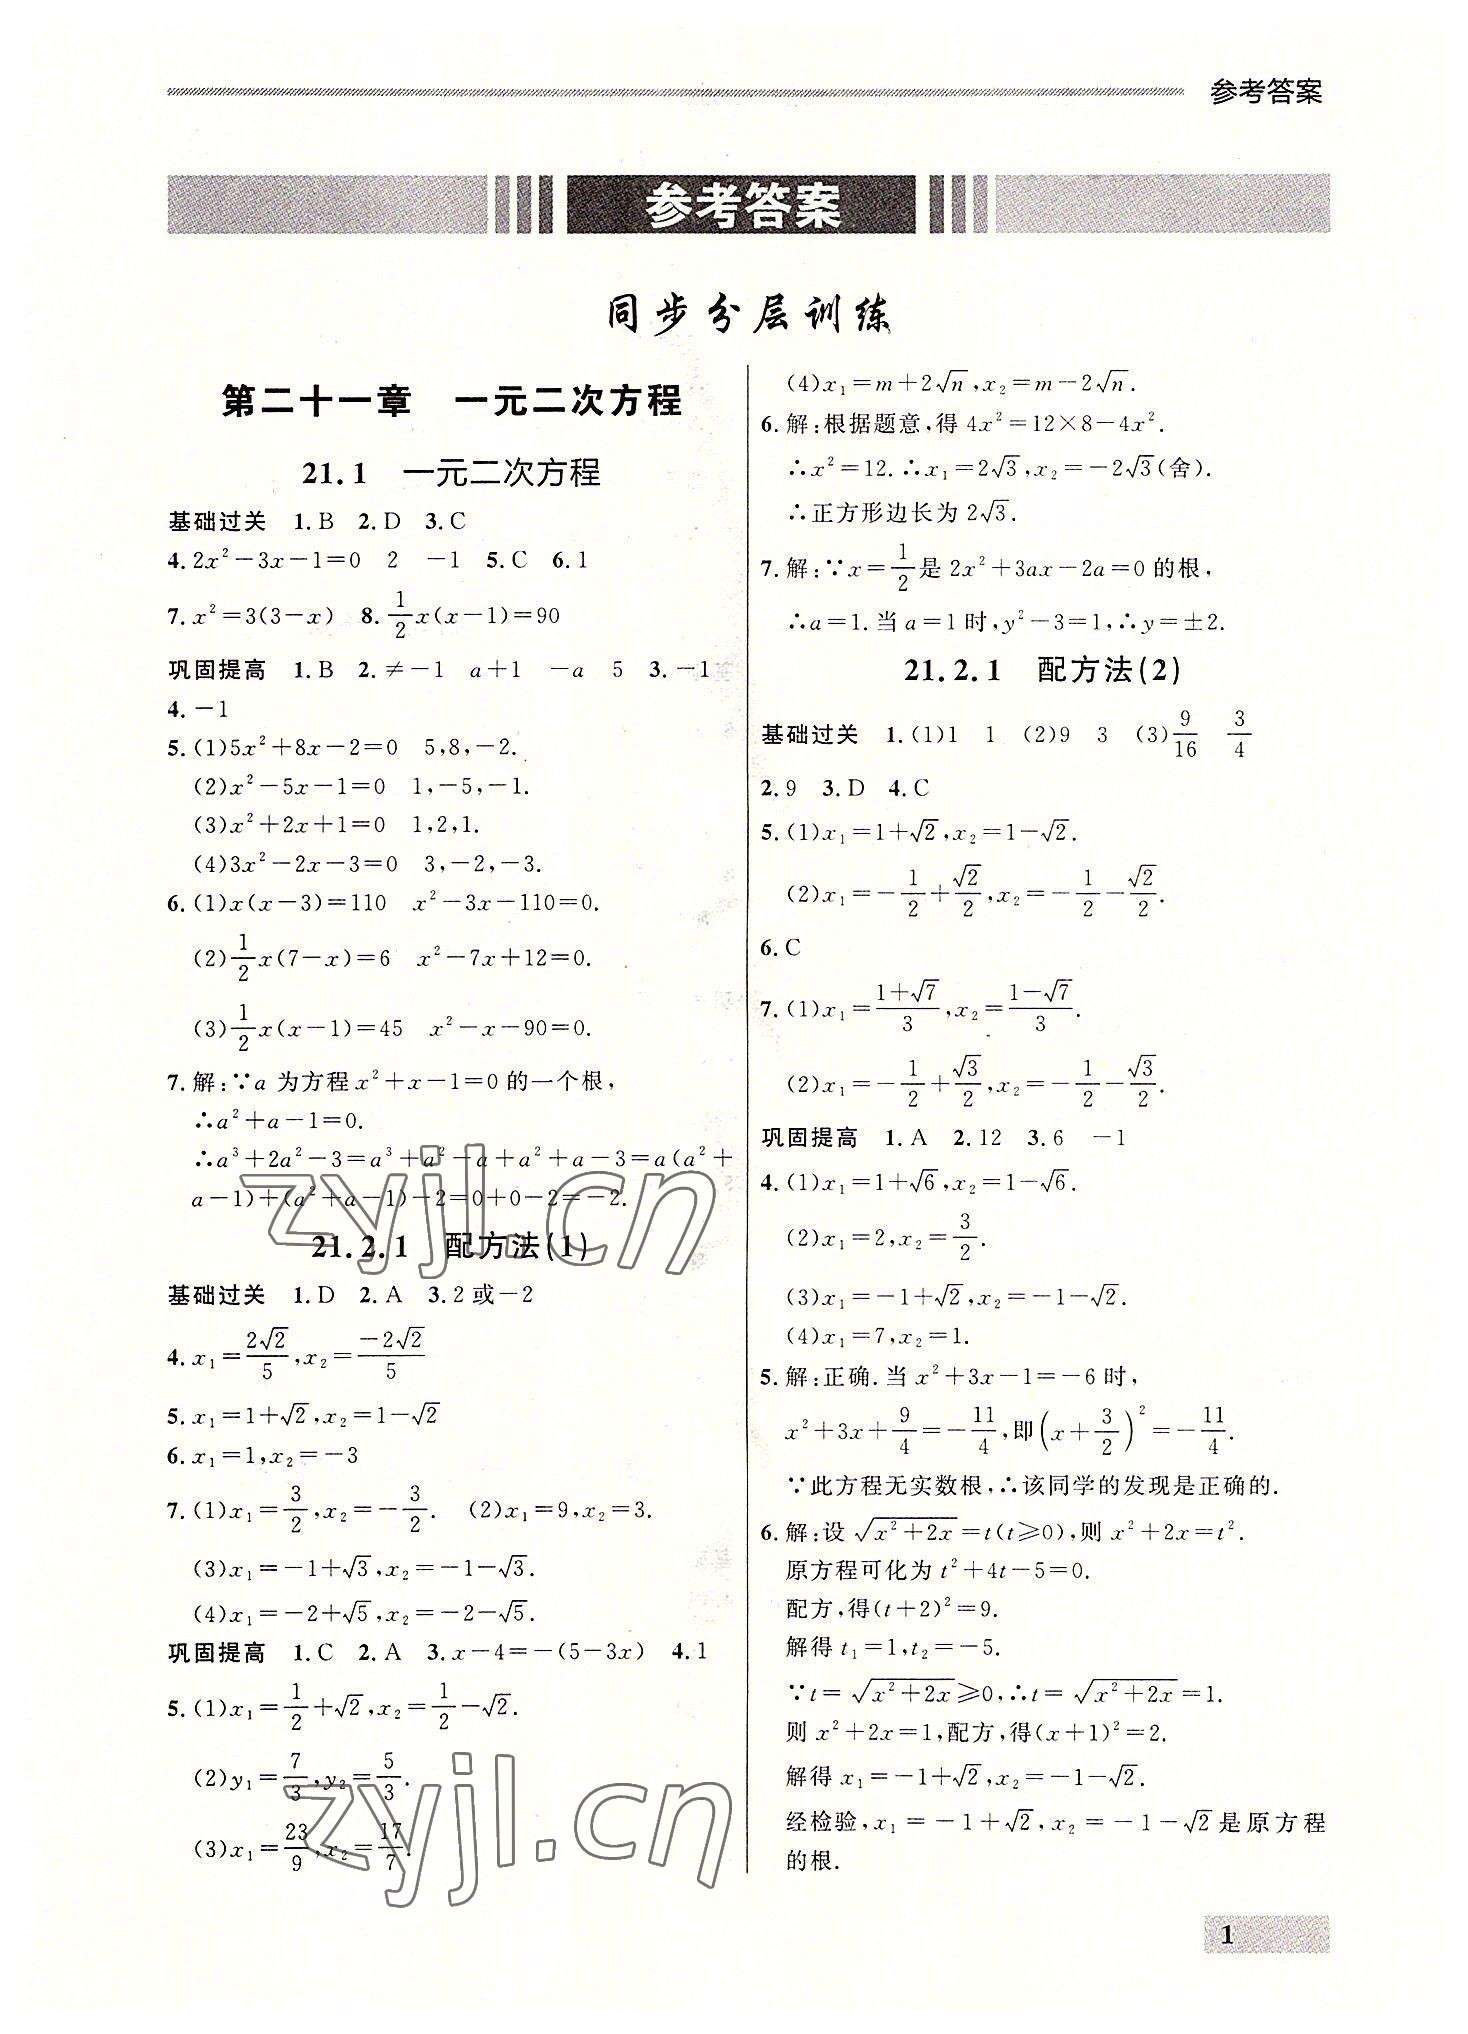 参考答案
参考答案
同步分层训练
第二十一章　一元二次方程
21.1　一元二次方程
基础过关　1.B　2.D　3.C
4.2x²-3x-1=0　2　-1　5.C　6.1
7.x²=3(3-x)　8.1/2x(x-1)=90
巩固提高　1.B　2.≠-1　a+1　-a　5　3.-1
4.-1
5.(1)5x²+8x-2=0　5,8,-2.
(2)x²-5x-1=0　1,-5,-1.
(3)x²+2x+1=0　1,2,1.
(4)3x²-2x-3=0　3,-2,-3.
6.(1)x(x-3)=110　x²-3x-110=0.
(2)1/2x(7-x)=6　x²-7x+12=0.
(3)1/2x(x-1)=45　x²-x-90=0.
7.解:∵a 为方程 x²+x-1=0 的一个根,
∴a²+a-1=0.
∴a³+2a²-3=a³+a²-a+a²+a-3=a(a²+
a-1)+(a²+a-1)-2=0+0-2=-2.
21.2.1　配方法(1)
基础过关　1.D　2.A　3.2 或-2
4.x₁=2√2/5,x₂=-2√2/5
5.x₁=1+√2,x₂=1-√2
6.x₁=1,x₂=-3
7.(1)x₁=3/2,x₂=-3/2.　(2)x₁=9,x₂=3.
(3)x₁=-1+√3,x₂=-1-√3.
(4)x₁=-2+√5,x₂=-2-√5.
巩固提高　1.C　2.A　3.x-4=-(5-3x)　4.1
5.(1)x₁=1/2+√2,x₂=1/2-√2.
(2)y₁=7/3,y₂=5/3.
(3)x₁=23/9,x₂=17/7.
(4)x₁=m+2√n,x₂=m-2√n.
6.解:根据题意,得 4x²=12×8-4x².
∴x²=12.∴x₁=2√3,x₂=-2√3(舍).
∴正方形边长为 2√3.
7.解:∵x=1/2是 2x²+3ax-2a=0 的根,
∴a=1.当 a=1 时,y²-3=1,∴y=±2.
21.2.1　配方法(2)
基础过关　1.(1)1　1　(2)9　3　(3)9/16　3/4
2.9　3.D　4.C
5.(1)x₁=1+√2,x₂=1-√2.
(2)x₁=-1/2+√2/2,x₂=-1/2-√2/2.
6.C
7.(1)x₁=(1+√7)/3,x₂=(1-√7)/3.
(2)x₁=-1/2+√3/2,x₂=-1/2-√3/2.
巩固提高　1.A　2.12　3.6　-1
4.(1)x₁=1+√6,x₂=1-√6.
(2)x₁=2,x₂=3/2.
(3)x₁=-1+√2,x₂=-1-√2.
(4)x₁=7,x₂=1.
5.解:正确.当 x²+3x-1=-6 时,
x²+3x+9/4=-11/4,即(x+3/2)²=-11/4.
∵此方程无实数根,∴该同学的发现是正确的.
6.解:设 √(x²+2x)=t(t≥0),则 x²+2x=t².
原方程可化为 t²+4t-5=0.
配方,得(t+2)²=9.
解得 t₁=1,t₂=-5.
∵t=√(x²+2x)≥0,∴t=√(x²+2x)=1.
则 x²+2x=1,配方,得(x+1)²=2.
解得 x₁=-1+√2,x₂=-1-√2.
经检验,x₁=-1+√2,x₂=-1-√2是原方程
的根.
1
zyjl.cn
zyjl.cn